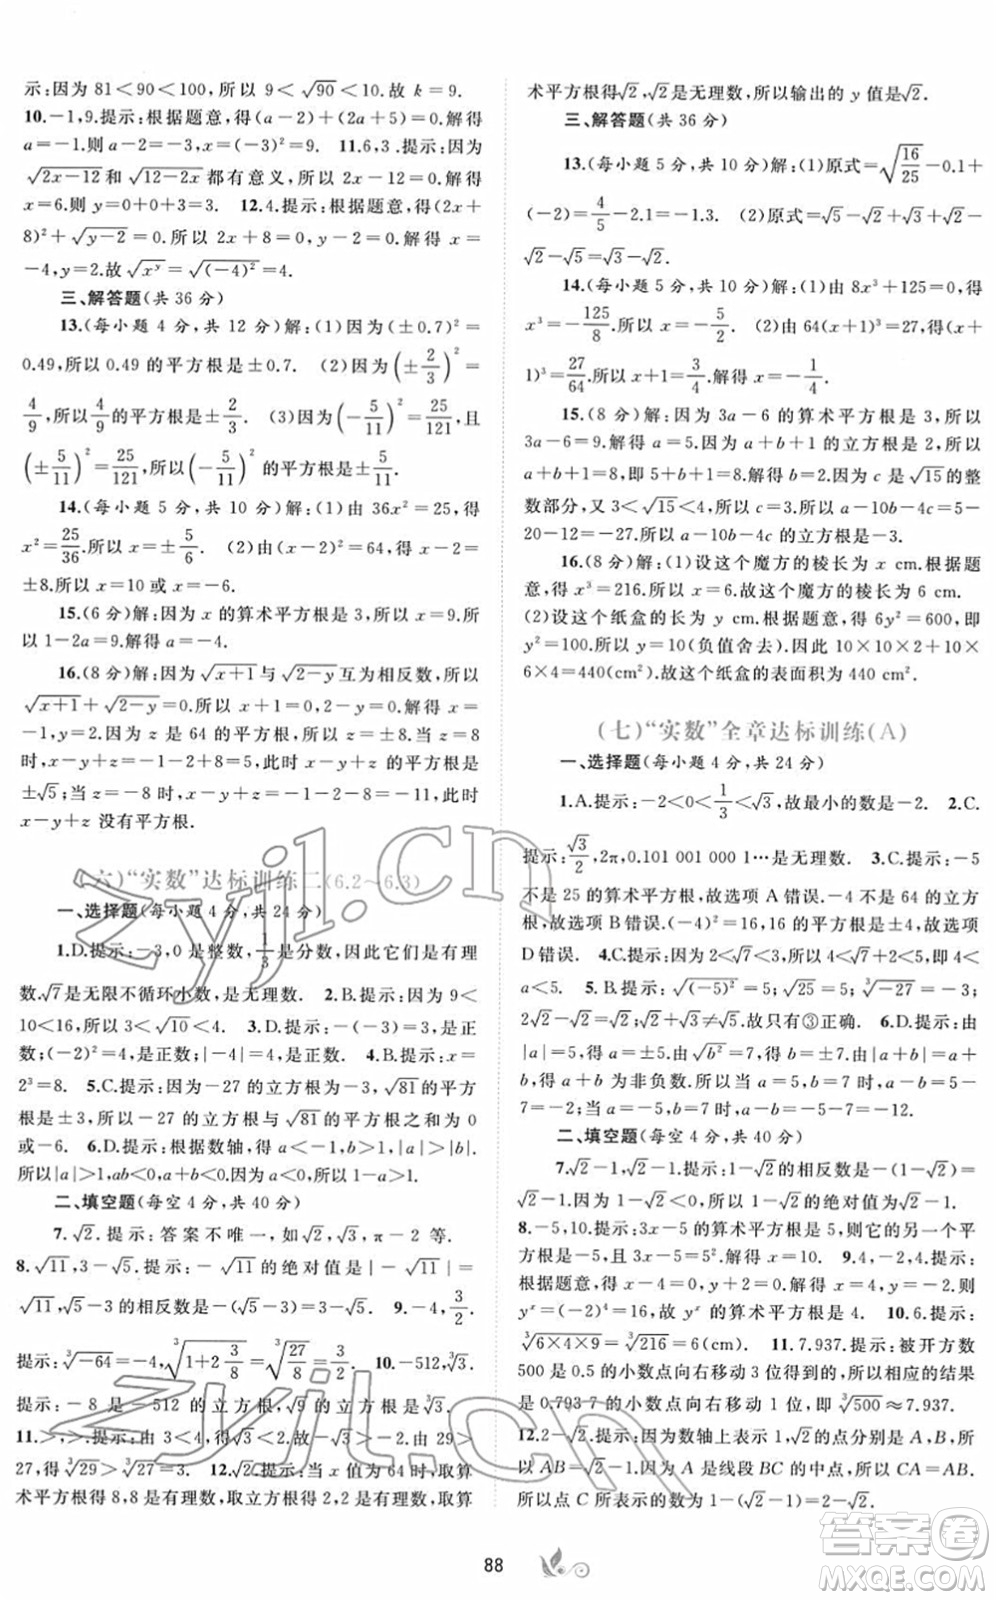 示:因为 81<90<100,所以 9<√90<10.故 k=9.
10.-1,9.提示:根据题意,得(a-2)+(2a+5)=0.解得
a=-1.则 a-2=-3,x=(-3)²=9. 11.6,3.提示:因为
√2x-12和√12-2x都有意义,所以 2x-12=0.解得
x=6.则 y=0+0+3=3. 12.4.提示:根据题意,得(2x+
8)²+√y-2=0.所以 2x+8=0,y-2=0.解得 x=
-4,y=2.故√xʸ=√(-4)²=4.
三、解答题(共 36 分)
13.(每小题 4 分,共 12 分)解:(1)因为(±0.7)²=
0.49,所以 0.49 的平方根是±0.7. (2)因为(±2/3)²=
4/9,所以4/9的平方根是±2/3. (3)因为(-5/11)²=25/121,且
(±5/11)²=25/121,所以(-5/11)²的平方根是±5/11.
14.(每小题 5 分,共 10 分)解:(1)由 36x²=25,得
x²=25/36.解得 x=±5/6. (2)由(x-2)²=64,得 x-2=
±8.所以 x=10 或 x=-6.
15.(6 分)解:因为 x 的算术平方根是 3,所以 x=9.所
以 1-2a=9.解得 a=-4.
16.(8 分)解:因为√x+1与√2-y互为相反数,所以
√x+1+√2-y=0.所以 x+1=0,2-y=0.解得 x=
-1,y=2.因为 z 是 64 的平方根,所以 z=±8.当 z=8 时,
x-y+z=-1-2+8=5,此时 x-y+z 的平方根是
±√5;当 z=-8 时,x-y+z=-1-2-8=-11,此时
x-y+z 没有平方根.
(六)“实数”达标训练二(6.2~6.3)
一、选择题(每小题 4 分,共 24 分)
1.D.提示:-3,0 是整数,1/3是分数,因此它们是有理
数.√7是无限不循环小数,是无理数. 2.B.提示:因为 9<
10<16,所以 3<√10<4. 3.D.提示:-(-3)=3,得
立方;(-2)²=4;|-4|=4. 4.B.提示:x=
2³=8. 5.C.提示:因为-27 的立方根是-3,√81的平方
根是±3,所以-27 的立方根与√81的平方根之和为 0
或-6. 6.D.提示:根据数轴,得 a<-1,b>1,|a|>|b|.
所以|a|>1,ab<0,a+b<0,1-a>1.
二、填空题(每空 4 分,共 40 分)
7.√2.提示:答案不唯一,如√2,√3,π 等.
8.√11,3-√5.提示:-√11的绝对值是|-√11|=
√11,√5-3 的相反数是-(√5-3)=3-√5. 9.-4,3/2.
提示:∛-64=-4,∛1+2 3/8=∛27/8=3/2. 10.-512,∛3.
提示:-8 是-512 的立方根,√9=3 的立方根是∛3.
11.>,>.提示:由 3<4,得√3<2.所以-√3>-2.由 29>
27,得∛29>∛27=3. 12.√2.提示:当 x=64 时,取算
术平方根得 8,8 是有理数,取立方根得 2,2 是有理数,取算
术平方根得√2,√2是无理数,所以输出的 y 值是√2.
三、解答题(共 36 分)
13.(每小题 5 分,共 10 分)解:(1)原式=√16/25-0.1+
(-2)=4/5-2.1=-1.3. (2)原式=√5-√2+√3+
√2-√5=√3.
14.(每小题 5 分,共 10 分)解:(1)由 8x³+125=0,得
x³=-125/8.所以 x=-5/2. (2)由 64(x+1)³=27,得(x+
1)³=27/64.所以 x+1=3/4.解得 x=-1/4.
15.(8 分)解:因为 3a-6 的算术平方根是 3,所以
3a-6=9.解得 a=5.因为 a+b+1 的立方根是 2,所以
a+b+1=8,即 5+b+1=8.解得 b=2.因为 c 是√15的整
数部分,又 3<√15<4,所以 c=3.所以 a-10b-4c=5-
20-12=-27.所以 a-10b-4c 的立方根是-3.
16.(8 分)解:(1)设这个魔方的棱长为 x cm.根据题
意,得 x³=216.所以 x=6.故这个魔方的棱长为 6 cm.
(2)设这个纸盒的长为 y cm.根据题意,得 6y²=600,即
y²=100.所以 y=10(负值舍去).因此 10×10×2+10×
6×4=440(cm²).故这个纸盒的表面积为 440 cm².
(七)“实数”全章达标训练(A)
一、选择题(每小题 4 分,共 24 分)
1.A.提示:-2<0<1/3<√3,故最小的数是-2. 2.C.
提示:√3/2,π/2,0.101 001 000 1…是无理数. 3.C.提示:-5
不是 25 的算术平方根,故选项 A 错误.-4 不是 4 的平方
根,故选项 B 错误.(-4)²=16,16 的平方根是±4,故选项
D 错误. 4.C.提示:因为 2<√7<3,所以 4<√7+2<5.即 4<
a<5. 5.B.提示:√(-5)²=5;√25=5;∛-27=-3;
2√2-√2=√2;√4=2;√2+√3≠√5.所以只有③正确. 6.D.提示:由
|a|=5,得 a=±5.由√b²=7,得 b=±7.由|a+b|=a+
b,得 a+b 为非负数.所以当 a=5,b=7 时,a-b=5-
7=-2;当 a=-5,b=7 时,a-b=-5-7=-12.
二、填空题(每空 4 分,共 40 分)
7.√2-1,√2-1.提示:1-√2的相反数是-(1-√2)=
√2-1.因为 1-√2<0,所以 1-√2的绝对值为√2-1.
8.-5,10.提示:3x-5 的算术平方根是 5,则它的另一个平
方根是-5,且 3x-5=5².解得 x=10. 9.4,-2,4.提示:
根据题意,得 x-4=0,y+2=0.解得 x=4,y=-2.则
yˣ=(-2)⁴=16.故 yˣ 的算术平方根是 4. 10.6.提示:
∛6×4×9=∛216=6(cm). 11.7.937.提示:被开方数
500 是 0.5 的小数点向右移动 3 位得到的,所以所求的结果
是 0.793 7 的小数点向右移动 1 位,即∛500≈7.937.
12.2-√2.提示:因为数轴上表示 1,√2的点分别是 A,B,
所以 AB=√2-1.因为 A 是线段 BC 的中点,所以 CA=AB.
所以点 C 所表示的数为 1-(√2-1)=2-√2.
88
zyjl.cn
zyjl.cn
答案圈
MXQE.COM